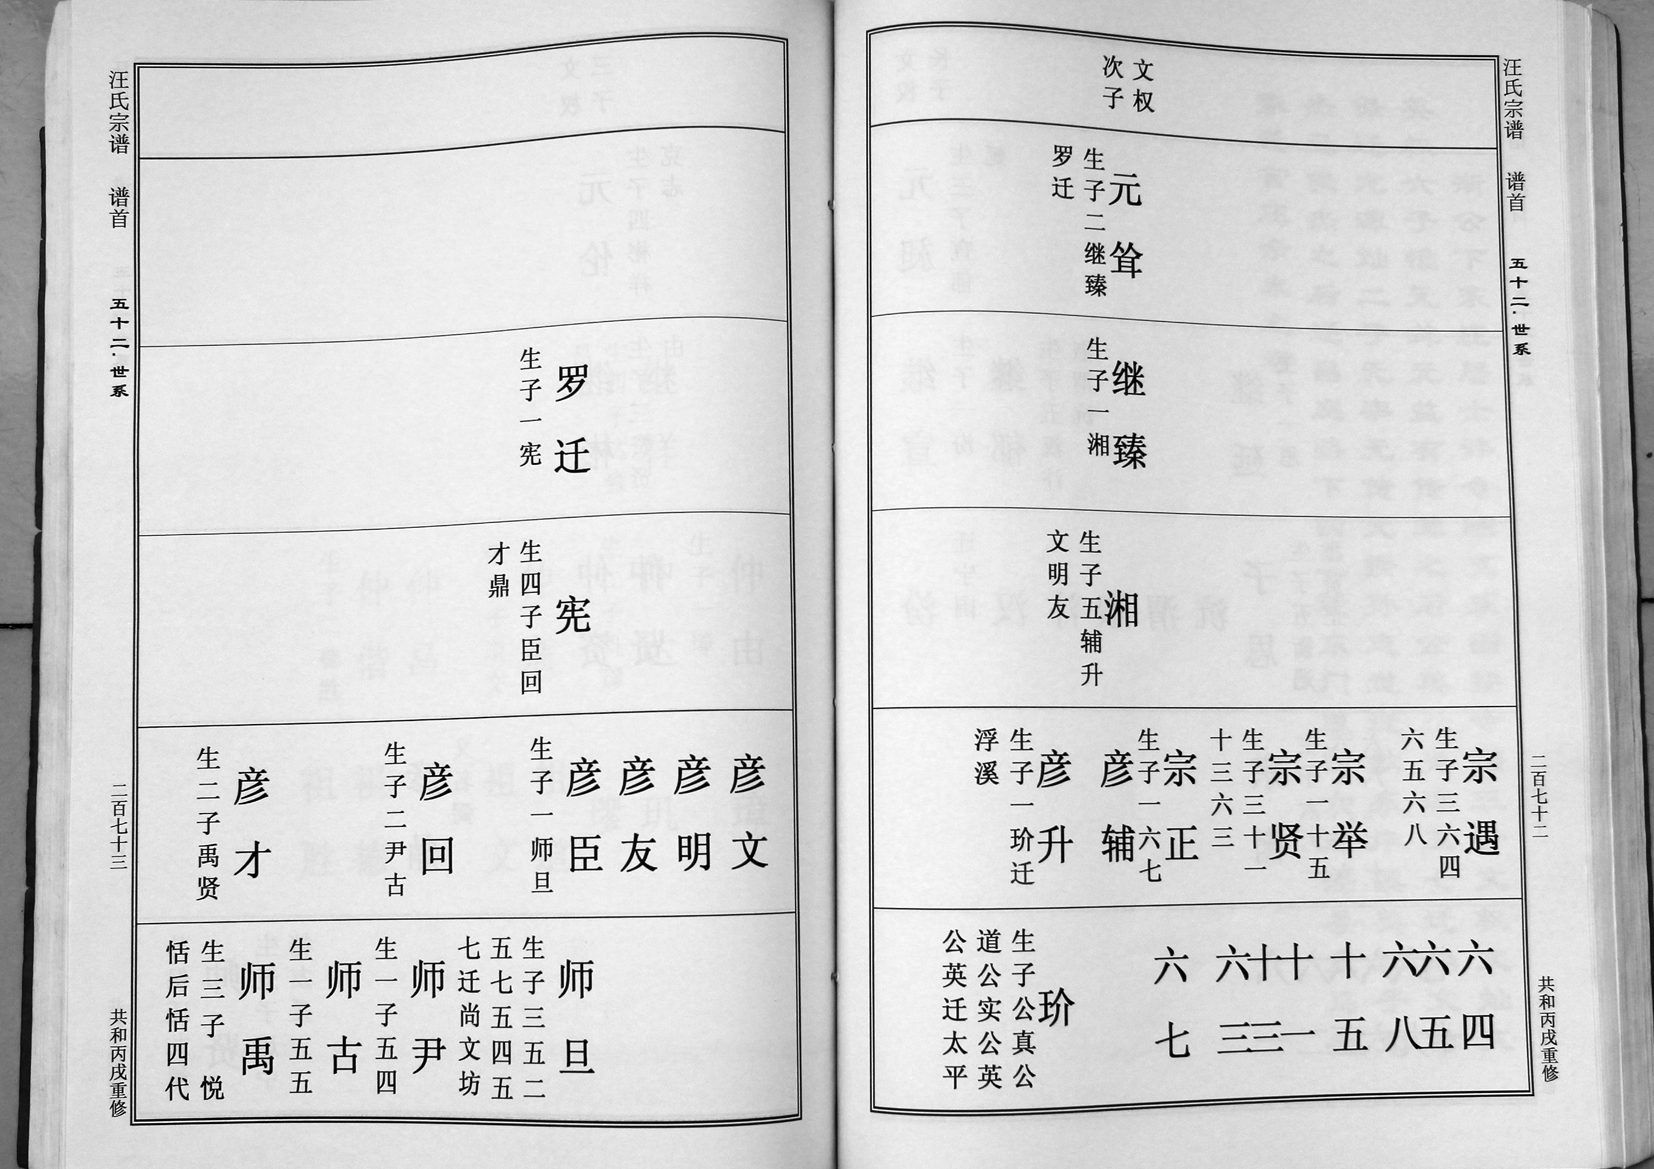 汪氏宗谱 谱首 五十二·世系 二百七十二 共和丙戌重修
文权
次子
元耸
生子二继臻
罗迁
继臻
生子一湘
湘
生子五辅升
文明友
宗遇
生子三六四
六五六八
宗举
生子一十五
宗贤
生子三十一
十三六三
宗正
生子一六七
彦辅
彦升
生子一玠迁
浮溪
六四
六五
六八
十五
十一
十三
六三
六七
玠
生子公真公
道公实公英
公英迁太平
罗迁
生子一宪
宪
生四子臣回
才鼎
彦文
彦明
彦友
彦臣
生子一师旦
彦回
生子二尹古
彦才
生二子禹贤
师旦
生子三五二
五七五四五
七迁尚文坊
师尹
生一子五四
师古
生一子五五
师禹
生三子 悦
恬后恬四代
汪氏宗谱 谱首 五十二·世系 二百七十三 共和丙戌重修